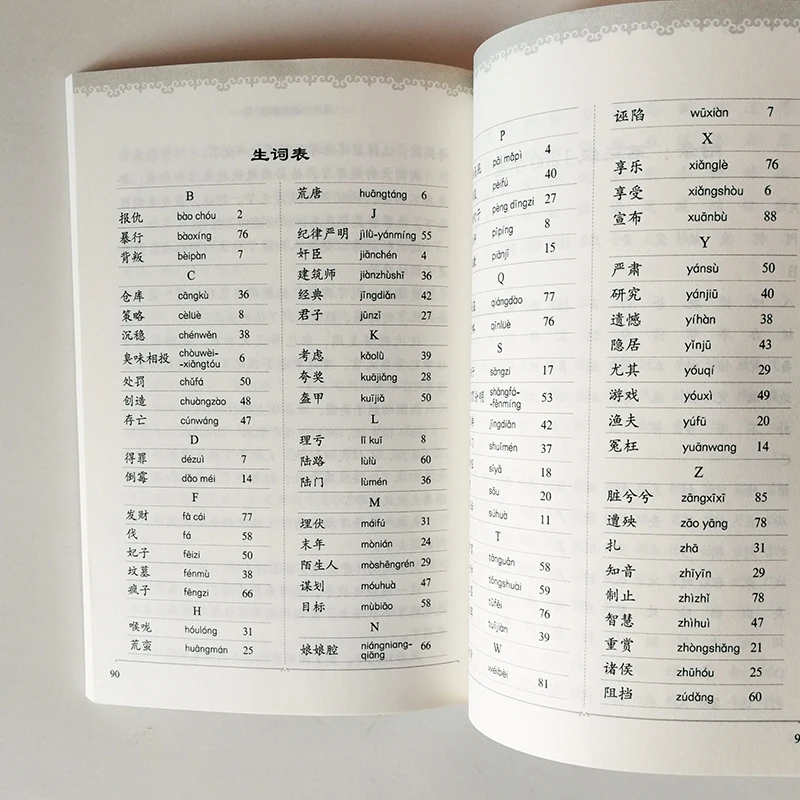 生词表
B
报仇 bào chóu 2
暴行 bàoxíng 76
背叛 bèipàn 7
C
仓库 cāngkù 36
策略 cèlüè 8
沉稳 chénwěn 38
臭味相投 chòuwèi-
-xiāngtóu 6
处罚 chǔfá 50
创造 chuàngzào 48
存亡 cúnwáng 47
D
得罪 dézuì 7
倒霉 dǎo méi 14
F
发财 fā cái 77
伐 fá 58
妃子 fēizi 50
坟墓 fénmù 38
疯子 fēngzi 66
H
喉咙 hóulóng 31
荒蛮 huāngmán 25
荒唐 huāngtáng 6
J
纪律严明 jìlǜ-yánmíng 55
奸臣 jiānchén 4
建筑师 jiànzhùshī 36
经典 jīngdiǎn 42
君子 jūnzǐ 27
K
考虑 kǎolǜ 39
夸奖 kuājiǎng 28
盔甲 kuījiǎ 50
L
理亏 lǐ kuī 8
陆路 lùlù 60
陆门 lùmén 36
M
埋伏 máifú 31
末年 mònián 24
陌生人 mòshēngrén 29
谋划 móuhuà 47
目标 mùbiāo 58
N
娘娘腔 niángniang-
qiāng 66
90
P
pāi mǎpì 4
pèifú 40
pèng dīngzi 27
pīpíng 8
piànjī 15
Q
qiángdào 77
qīnlüè 76
S
sǎngzi 17
分明 shǎngfá-
-fēnmíng 53
jīngdiǎn 42
shuǐmén 37
sīyǎ 18
sōu 20
súhuà 11
T
tānguān 58
tǒngshuài 59
tǔfěi 76
tuījiàn 39
W
wéibèi 81
诬陷 wūxiàn 7
X
享乐 xiǎnglè 76
享受 xiǎngshòu 6
宣布 xuānbù 88
Y
严肃 yánsù 50
研究 yánjiū 40
遗憾 yíhàn 38
隐居 yǐnjū 43
尤其 yóuqí 29
游戏 yóuxì 49
渔夫 yúfū 20
冤枉 yuānwang 14
Z
脏兮兮 zāngxīxī 85
遭殃 zāo yāng 78
扎 zhā 31
知音 zhīyīn 29
制止 zhìzhǐ 78
智慧 zhìhuì 47
重赏 zhòngshǎng 21
诸侯 zhūhóu 25
阻挡 zǔdǎng 60